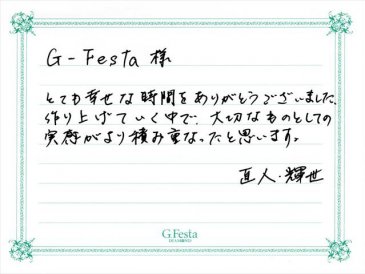 G-Festa 様
とても幸せな時間をありがとうございました。
作り上げていく中で、大切なものとしての
実感がより積み重なったと思います。
直人・輝世
G.Festa
DIAMOND